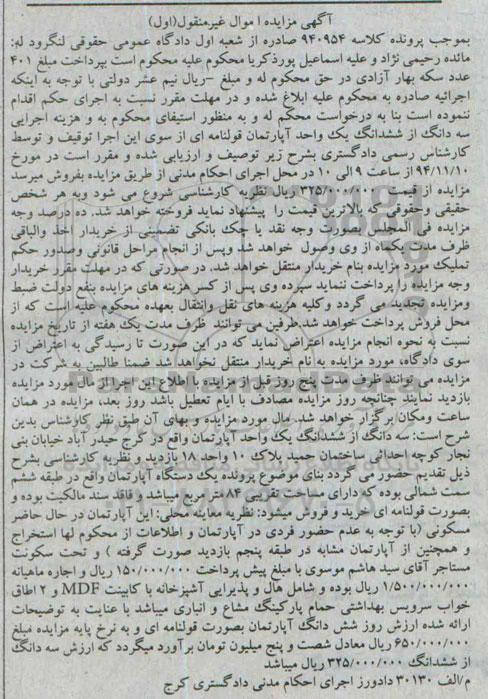 آگهی مزایده اموال غیرمنقول(اول)
بموجب پرونده کلاسه ۹۴۰۹۵۴ صادره از شعبه اول دادگاه عمومی حقوقی لنگرود له:
مائده رحیمی نژاد و علیه اسماعیل پورذکریا محکوم علیه محکوم است بپرداخت مبلغ ۴۰۱
عدد سکه بهار آزادی در حق محکوم له و مبلغ -ریال نیم عشر دولتی با توجه به اینکه
اجرائیه صادره به محکوم علیه ابلاغ شده و در مهلت مقرر نسبت به اجرای حکم اقدام
ننموده است بنا به درخواست محکم له و به منظور استیفای محکوم به و هزینه اجرایی
سه دانگ از ششدانگ یک واحد آپارتمان قولنامه ای از سوی این اجرا توقیف و توسط
کارشناس رسمی دادگستری بشرح زیر توصیف و ارزیابی شده و مقرر است در مورخ
۹۴/۱۱/۱۰از ساعت ۹ الی ۱۰ در محل اجرای احکام مدنی از طریق مزایده بفروش میرسد
مزایده از قیمت ۳۲۵/۰۰۰/۰۰۰ ریال نظریه کارشناسی شروع می شود وبه هر شخص
حقیقی وحقوقی که بالاترین قیمت را پیشنهاد نماید فروخته خواهد شد. ده درصد وجه
مزایده فی المجلس بصورت وجه نقد یا چک بانکی تضمینی از خریدار اخذ والباقی
ظرف مدت یکماه از وی وصول خواهد شد وپس از انجام مراحل قانونی وصدور حکم
تملیک مورد مزایده بنام خریدار منتقل خواهد شد. در صورتی که در مهلت مقرر خریدار
وجه مزایده را پرداخت ننماید سپرده وی پس از کسر هزینه های مزایده بنفع دولت ضبط
ومزایده تجدید می گردد وکلیه هزینه های نقل وانتقال بعهده محکوم علیه است که از
محل فروش پرداخت خواهد شد.طرفین می توانند ظرف مدت یک هفته از تاریخ مزایده
نسبت به نحوه انجام مزایده اعتراض نماید که در این صورت تا رسیدگی به اعتراض از
سوی دادگاه، مورد مزایده به نام خریدار منتقل نخواهد شد ضمنا طالبین به شرکت در
مزایده می توانند ظرف مدت پنج روز قبل از مزایده با اطلاع این اجرا از مال مورد مزایده
بازدید نمایند چنانچه روز مزایده مصادف با ایام تعطیل باشد روز بعد، مزایده در همان
ساعت ومکان برگزار خواهد شد. مال مورد مزایده و بهای آن طبق نظر کارشناس بدین
شرح است: سه دانگ از ششدانگ یک واحد آپارتمان واقع در کرج حیدر آباد خیابان بنی
نجار کوچه احداثی ساختمان حمید بلاک ۱۰ واحد ۱۸ بازدید و نظریه کارشناسی بشرح
ذیل تقدیم حضور می گردد بنای موضوع پرونده یک دستگاه آپارتمان واقع در طبقه ششم
سمت شمالی بوده که دارای مساحت تقریبی ۸۴ متر مربع میباشد و فاقد سند مالکیت بوده و
بصورت قولنامه ای خرید و فروش میشود: نظریه معاینه محلی: این آپارتمان در حال حاضر
مسکونی (با توجه به عدم حضور فردی در آپارتمان و اطلاعات از محکوم لها استخراج
و همچنین از آپارتمان مشابه در طبقه پنجم بازدید صورت گرفته ) و تحت سکونت
مستاجر آقای سید هاشم موسوی با مبلغ پیش پرداخت ۱۵۰/۰۰۰/۰۰۰ ریال و اجاره ماهیانه
۱/۵۰۰/۰۰۰/۰۰۰ ریال بوده و شامل هال و پذیرایی آشپزخانه با کابینت MDF و ۲ اطاق
خواب سرویس بهداشتی حمام پارکینگ مشاع و انباری میباشد با عنایت به توضیحات
ارائه شده ارزش روز شش دانگ آپارتمان بصورت قولنامه ای و به نرخ پایه مزایده مبلغ
۶۵۰/۰۰۰/۰۰۰ ریال معادل شصت و پنج میلیون تومان برآورد میگردد که ارزش سه دانگ
از ششدانگ ۳۲۵/۰۰۰/۰۰۰ ریال میباشد
م/الف ۳۰۱۳۰ دادورز اجرای احکام مدنی دادگستری کرج